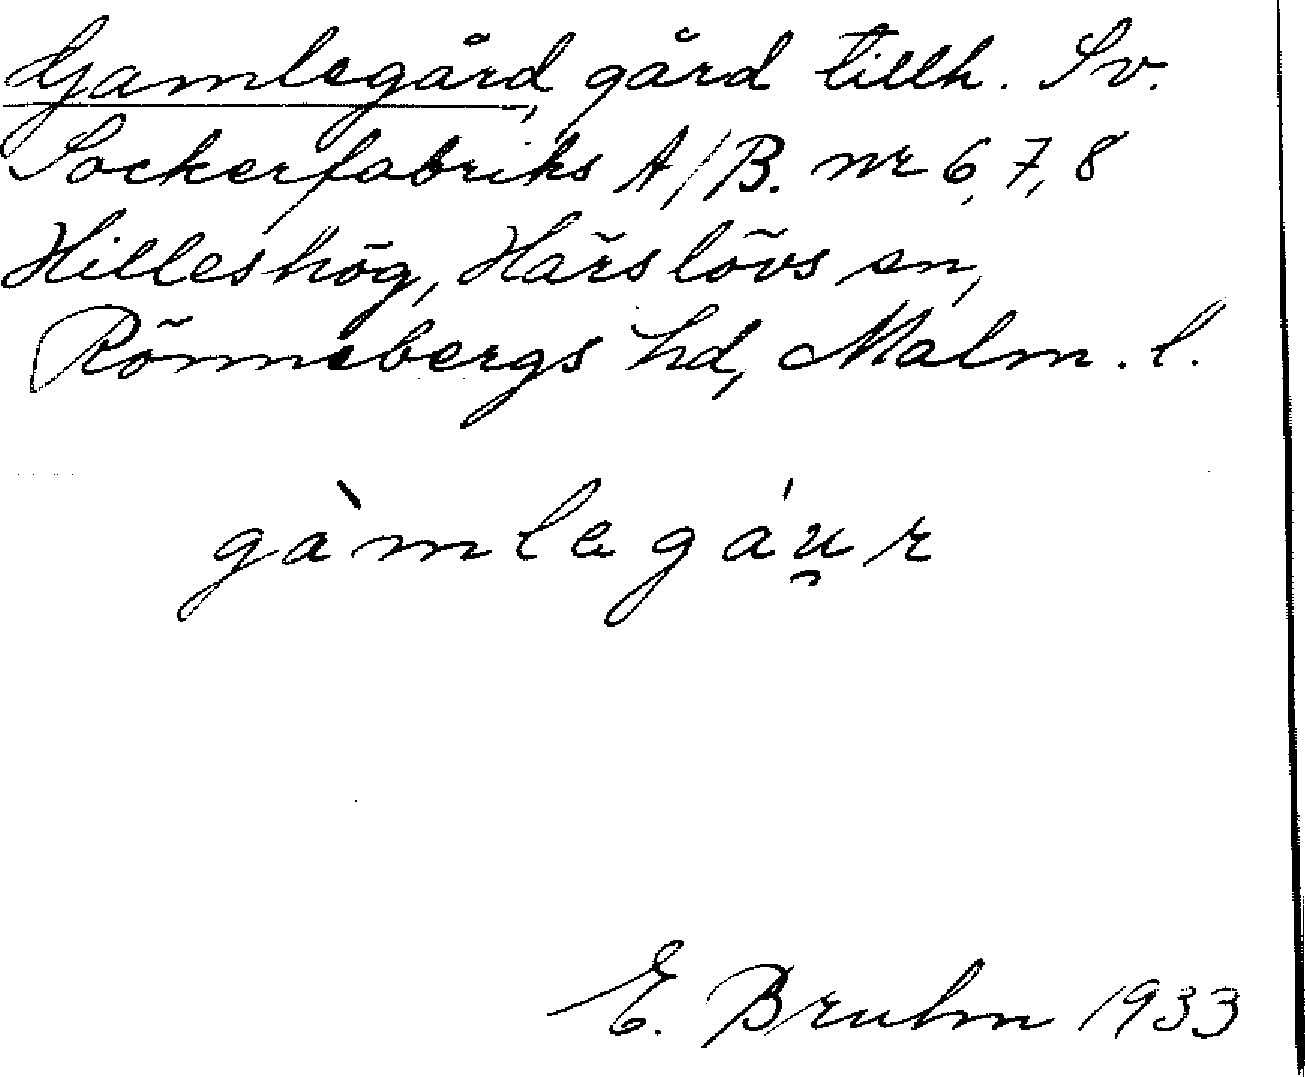 Gamlegård, gård tillh. Sv.
Sockerfabriks A/B. nr 6, 7, 8
Hilleshög, Härslövs sn,
Rönnebergs hd, Malm. l.
gàmlegáu̯r
E. Bruhn 1933